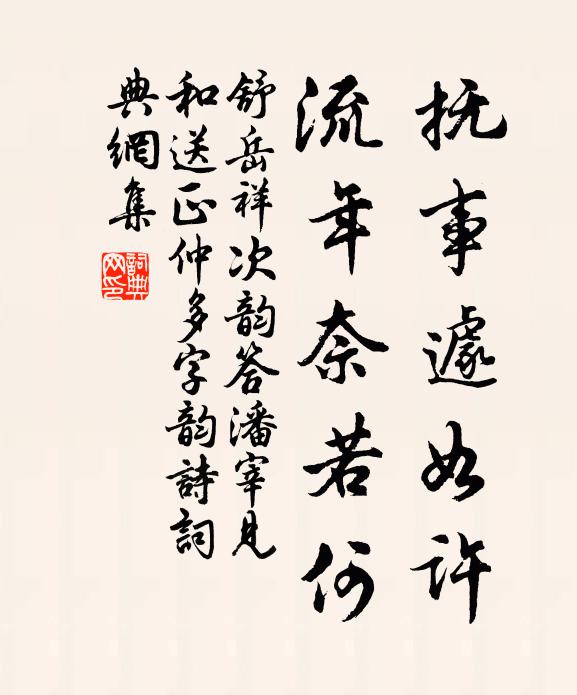 抚事遽如许
流年奈若何
舒岳祥次韵答潘宰见
和送正仲多字韵詩詞
典網集
詞典网印